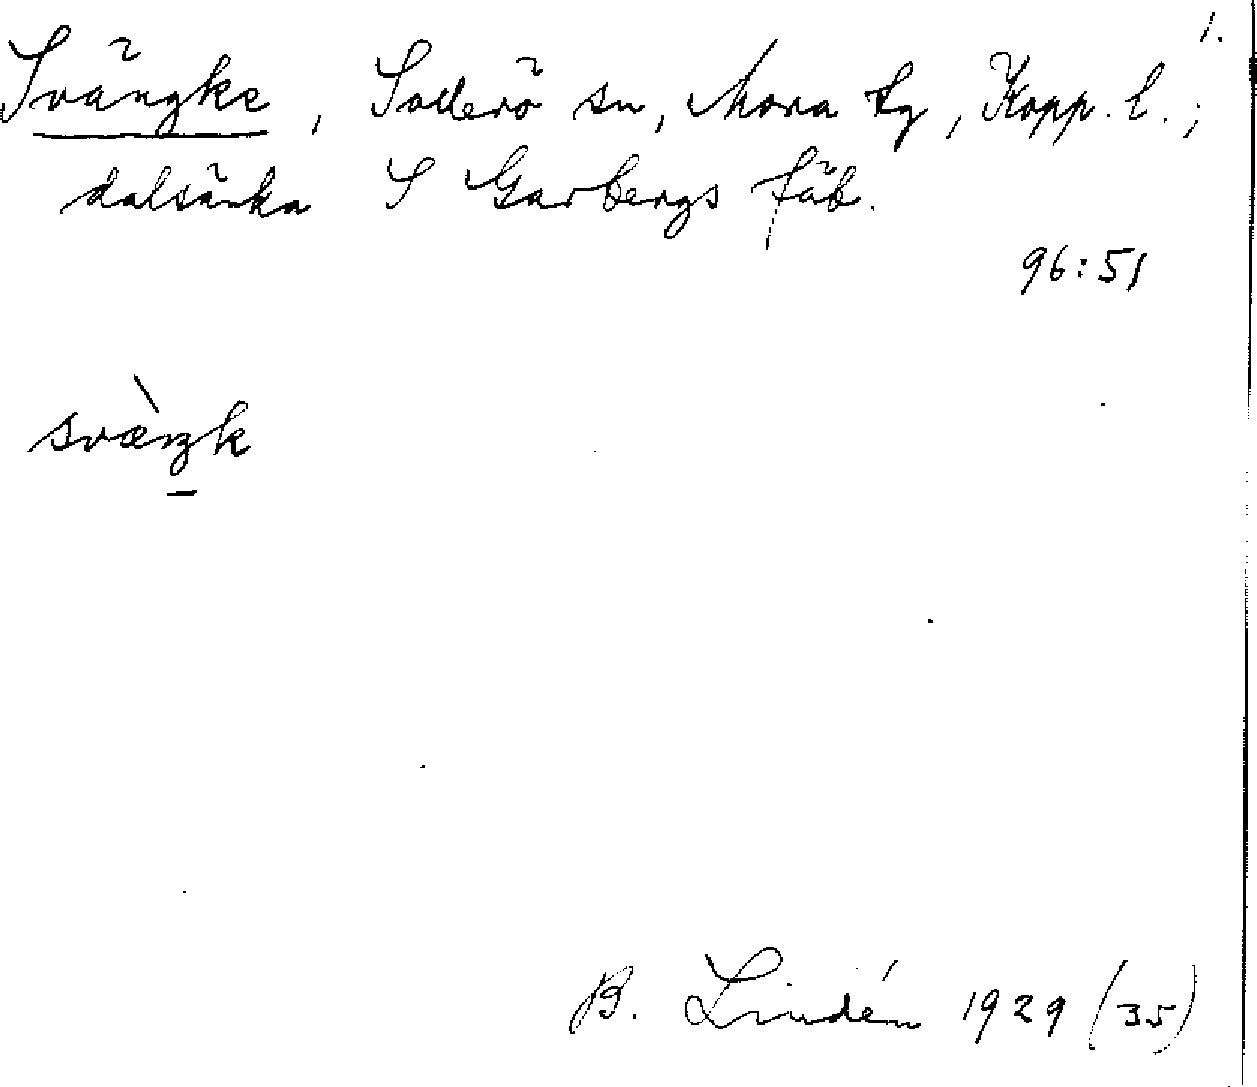 1.
Svängke, Sollerö sn, Mora tg, Kopp. l.;
dalsänka S Garbergs fäb.
96:51
svæ̀ŋk
B. Lindén 1929 (35)